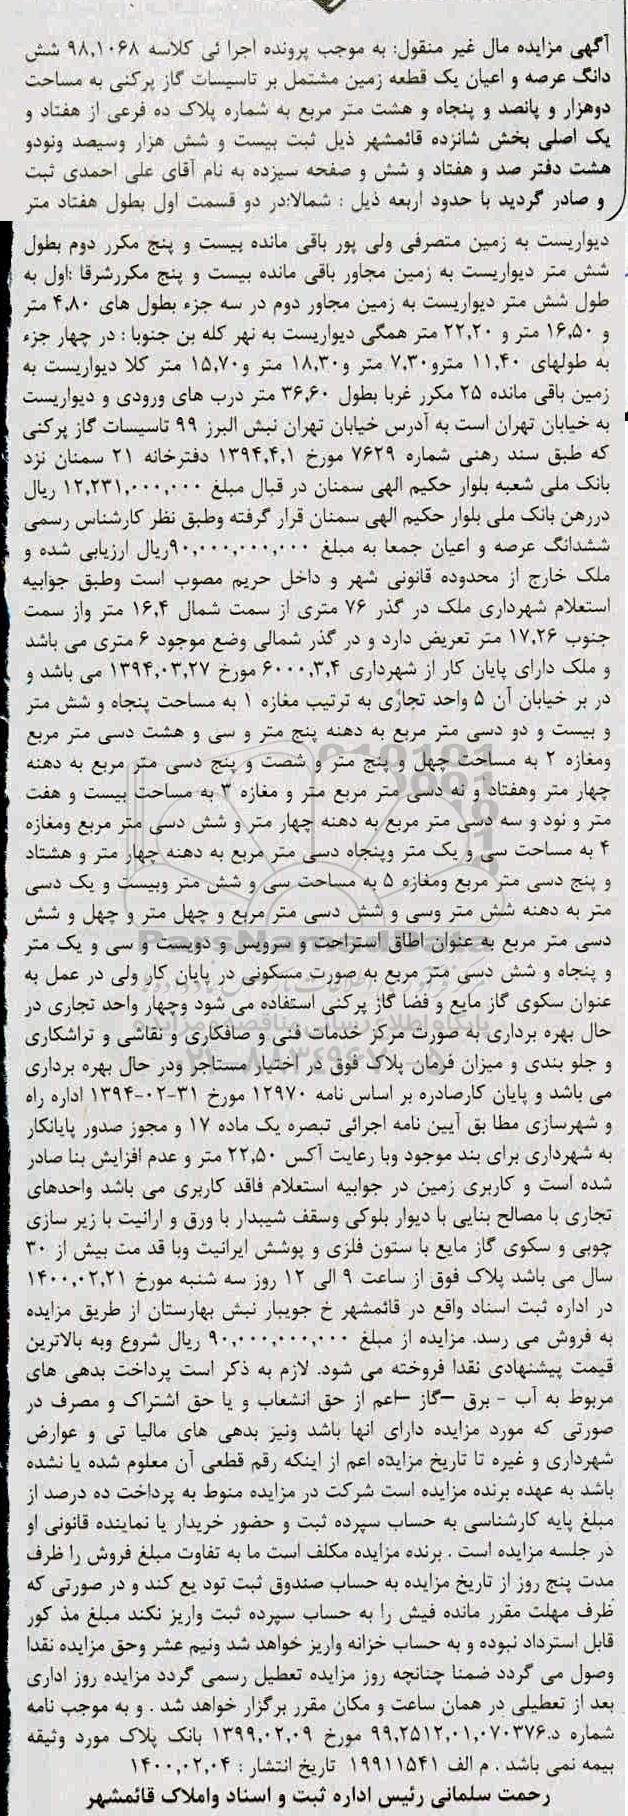 آگهی مزایده مال غیر منقول: به موجب پرونده اجرا ئی کلاسه ۹۸,۱۰۶۸ شش
دانگ عرصه و اعیان یک قطعه زمین مشتمل بر تاسیسات گاز پرکنی به مساحت
دوهزار و پانصد و پنجاه و هشت متر مربع به شماره پلاک ده فرعی از هفتاد و
یک اصلی بخش شانزده قائمشهر ذیل ثبت بیست و شش هزار وسیصد ونودو
هشت دفتر صد و هفتاد و شش و صفحه سیزده به نام آقای علی احمدی ثبت
و صادر گردید با حدود اربعه ذیل : شمالا:در دو قسمت اول بطول هفتاد متر
دیواریست به زمین متصرفی ولی پور باقی مانده بیست و پنج مکرر دوم بطول
شش متر دیواریست به زمین مجاور باقی مانده بیست و پنج مکررشرقا :اول به
طول شش متر دیواریست به زمین مجاور دوم در سه جزء بطول های ۴,۸۰ متر
و ۱۶,۵۰ متر و ۲۲,۲۰ متر همگی دیواریست به نهر کله بن جنوبا : در چهار جزء
به طولهای ۱۱,۴۰ مترو۷,۳۰ متر و۱۸,۳۰ متر و۱۵,۷۰ متر کلا دیواریست به
زمین باقی مانده ۲۵ مکرر غربا بطول ۳۶,۶۰ متر درب های ورودی و دیواریست
به خیابان تهران است به آدرس خیابان تهران نبش البرز ۹۹ تاسیسات گاز پرکنی
که طبق سند رهنی شماره ۷۶۲۹ مورخ ۱۳۹۴,۴,۱ دفترخانه ۲۱ سمنان نزد
بانک ملی شعبه بلوار حکیم الهی سمنان در قبال مبلغ ۱۲,۲۳۱,۰۰۰,۰۰۰ ریال
دررهن بانک ملی بلوار حکیم الهی سمنان قرار گرفته وطبق نظر کارشناس رسمی
ششدانگ عرصه و اعیان جمعا به مبلغ ۹۰,۰۰۰,۰۰۰,۰۰۰ریال ارزیابی شده و
ملک خارج از محدوده قانونی شهر و داخل حریم مصوب است وطبق جوابیه
استعلام شهرداری ملک در گذر ۷۶ متری از سمت شمال ۱۶,۴ متر واز سمت
جنوب ۱۷,۲۶ متر تعریض دارد و در گذر شمالی وضع موجود ۶ متری می باشد
و ملک دارای پایان کار از شهرداری ۶۰۰۰,۳,۴ مورخ ۱۳۹۴,۰۳,۲۷ می باشد و
در بر خیابان آن ۵ واحد تجاری به ترتیب مغازه ۱ به مساحت پنجاه و شش متر
و بیست و دو دسی متر مربع به دهنه پنج متر و سی و هشت دسی متر مربع
ومغازه ۲ به مساحت چهل و پنج متر و شصت و پنج دسی متر مربع به دهنه
چهار متر وهفتاد و نه دسی متر مربع متر و مغازه ۳ به مساحت بیست و هفت
متر و نود و سه دسی متر مربع به دهنه چهار متر و شش دسی متر مربع ومغازه
۴ به مساحت سی و یک متر وپنجاه دسی متر مربع به دهنه چهار متر و هشتاد
و پنج دسی متر مربع ومغازه ۵ به مساحت سی و شش متر وبیست و یک دسی
متر به دهنه شش متر وسی و شش دسی متر مربع و چهل متر و چهل و شش
دسی متر مربع به عنوان اطاق استراحت و سرویس و دویست و سی و یک متر
و پنجاه و شش دسی متر مربع به صورت مسکونی در پایان کار ولی در عمل به
عنوان سکوی گاز مایع و فضا گاز پرکنی استفاده می شود وچهار واحد تجاری در
حال بهره برداری به صورت مرکز خدمات فنی و صافکاری و نقاشی و تراشکاری
و جلو بندی و میزان فرمان پلاک فوق در اختیار مستاجر ودر حال بهره برداری
می باشد و پایان کارصادره بر اساس نامه ۱۲۹۷۰ مورخ ۳۱-۰۲-۱۳۹۴ اداره راه
و شهرسازی مطا بق آیین نامه اجرائی تبصره یک ماده ۱۷ و مجوز صدور پایانکار
به شهرداری برای بند موجود وبا رعایت آکس ۲۲,۵۰ متر و عدم افزایش بنا صادر
شده است و کاربری زمین در جوابیه استعلام فاقد کاربری می باشد واحدهای
تجاری با مصالح بنایی با دیوار بلوکی وسقف شیبدار با ورق و ارانیت با زیر سازی
چوبی و سکوی گاز مایع با ستون فلزی و پوشش ایرانیت وبا قد مت بیش از ۳۰
سال می باشد پلاک فوق از ساعت ۹ الی ۱۲ روز سه شنبه مورخ ۱۴۰۰,۰۲,۲۱
در اداره ثبت اسناد واقع در قائمشهر خ جویبار نبش بهارستان از طریق مزایده
به فروش می رسد. مزایده از مبلغ ۹۰,۰۰۰,۰۰۰,۰۰۰ ریال شروع وبه بالاترین
قیمت پیشنهادی نقدا فروخته می شود. لازم به ذکر است پرداخت بدهی های
مربوط به آب - برق –گاز –اعم از حق انشعاب و یا حق اشتراک و مصرف در
صورتی که مورد مزایده دارای انها باشد ونیز بدهی های مالیا تی و عوارض
شهرداری و غیره تا تاریخ مزایده اعم از اینکه رقم قطعی آن معلوم شده یا نشده
باشد به عهده برنده مزایده است شرکت در مزایده منوط به پرداخت ده درصد از
مبلغ پایه کارشناسی به حساب سپرده ثبت و حضور خریدار یا نماینده قانونی او
در جلسه مزایده است . برنده مزایده مکلف است ما به تفاوت مبلغ فروش را ظرف
مدت پنج روز از تاریخ مزایده به حساب صندوق ثبت تود یع کند و در صورتی که
ظرف مهلت مقرر مانده فیش را به حساب سپرده ثبت واریز نکند مبلغ مذ کور
قابل استرداد نبوده و به حساب خزانه واریز خواهد شد ونیم عشر وحق مزایده نقدا
وصول می گردد ضمنا چنانچه روز مزایده تعطیل رسمی گردد مزایده روز اداری
بعد از تعطیلی در همان ساعت و مکان مقرر برگزار خواهد شد . و به موجب نامه
شماره د.۹۹,۲۵۱۲,۰۱,۰۷۰۳۷۶ مورخ ۱۳۹۹,۰۲,۰۹ بانک پلاک مورد وثیقه
بیمه نمی باشد . م الف ۱۹۹۱۱۵۴۱ تاریخ انتشار : ۱۴۰۰,۰۲,۰۴
رحمت سلمانی رئیس اداره ثبت و اسناد واملاک قائمشهر